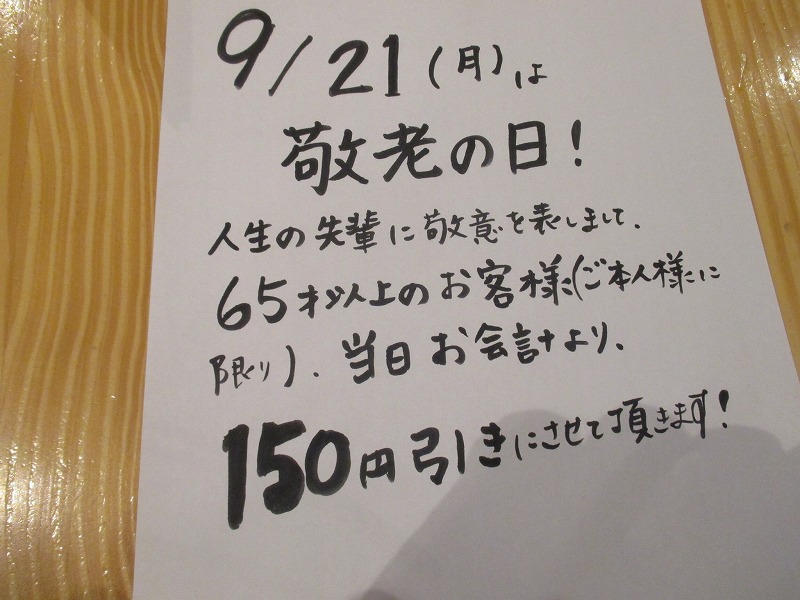 9/21(月)は
敬老の日!
人生の先輩に敬意を表しまして、
65才以上のお客様(ご本人様に
限り)、当日お会計より、
150円引きにさせて頂きます!